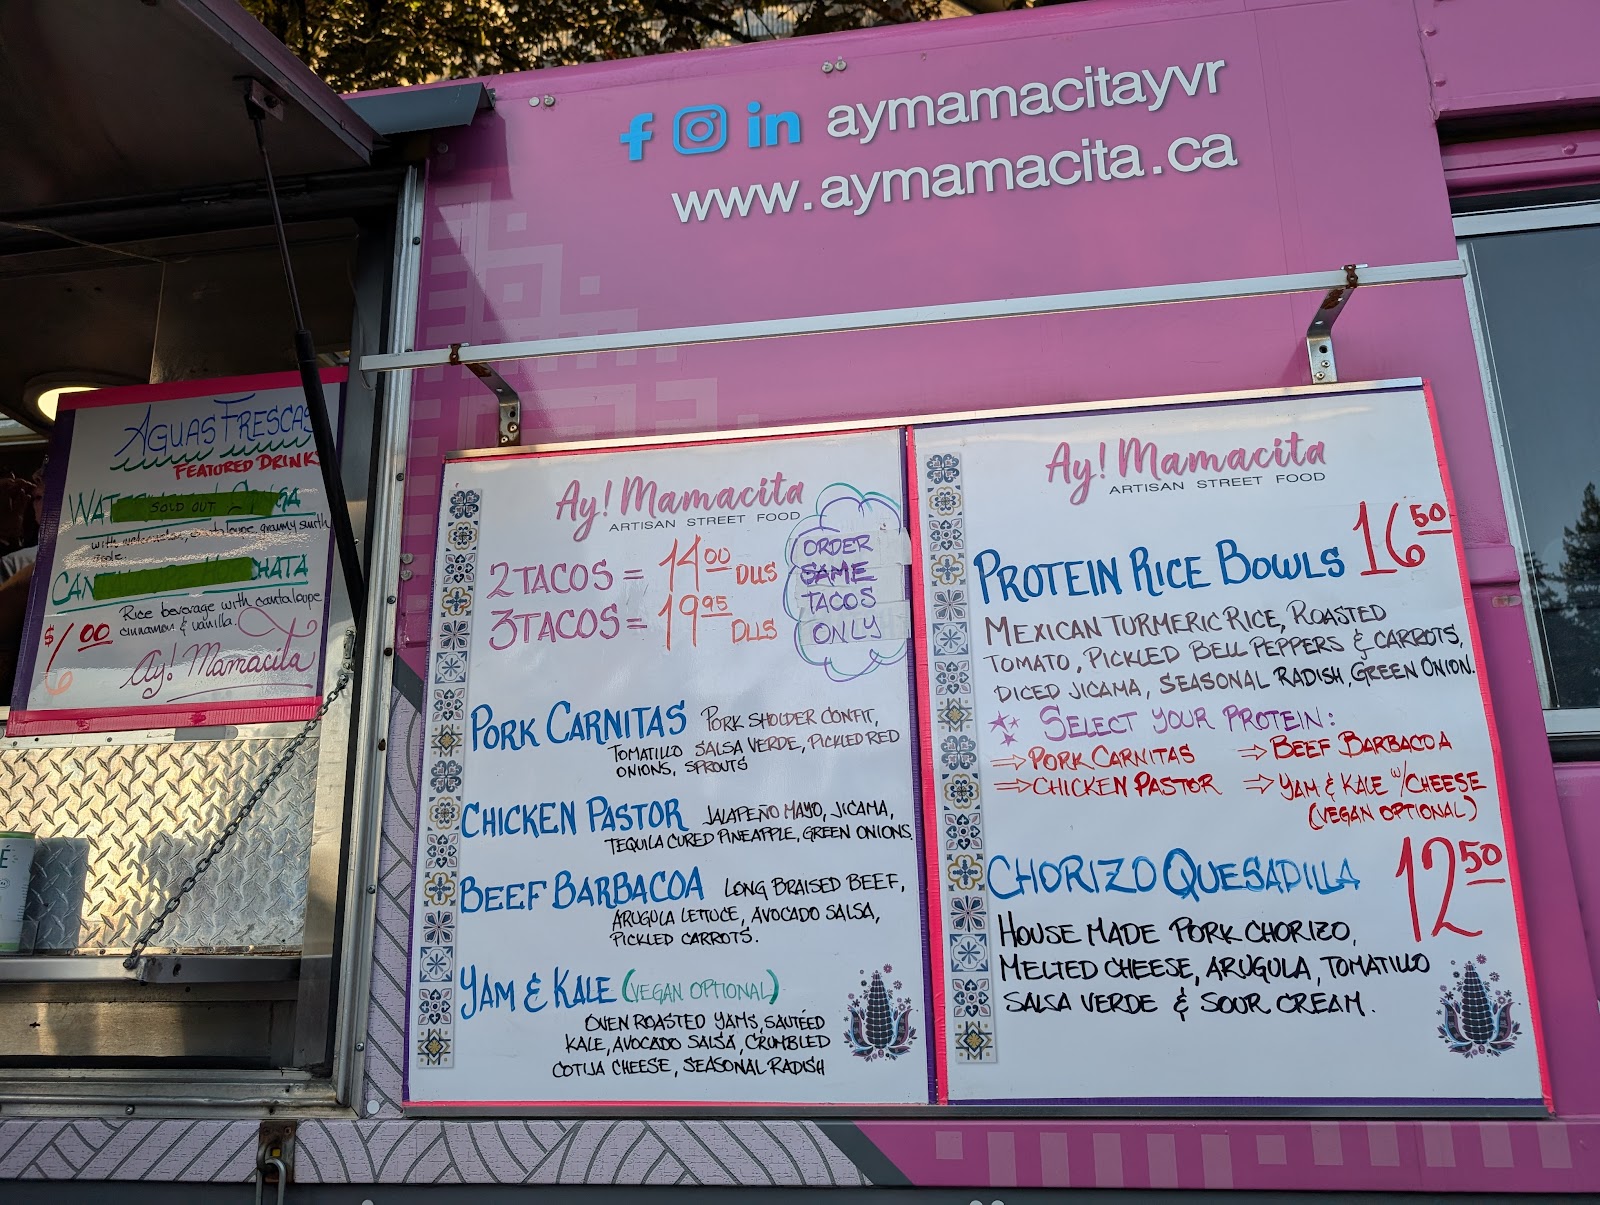 aymamacitayvr
www.aymamacita.ca
AGUAS FRESCAS
FEATURED DRINKS
SOLD OUT
Rice beverage with cantaloupe
cinnamon & vanilla.
Ay! Mamacita
Ay! Mamacita
ARTISAN STREET FOOD
2 TACOS = 14.00 DLLS
3 TACOS = 19.95 DLLS
ORDER
SAME
TACOS
ONLY
PORK CARNITAS PORK SHOLDER CONFIT,
TOMATILLO SALSA VERDE, PICKLED RED
ONIONS, SPROUTS
CHICKEN PASTOR JALAPEÑO MAYO, JICAMA,
TEQUILA CURED PINEAPPLE, GREEN ONIONS.
BEEF BARBACOA LONG BRAISED BEEF,
ARUGULA LETTUCE, AVOCADO SALSA,
PICKLED CARROTS.
YAM & KALE (VEGAN OPTIONAL)
OVEN ROASTED YAMS, SAUTÉED
KALE, AVOCADO SALSA, CRUMBLED
COTIJA CHEESE, SEASONAL RADISH
Ay! Mamacita
ARTISAN STREET FOOD
PROTEIN RICE BOWLS 16 50
MEXICAN TURMERIC RICE, ROASTED
TOMATO, PICKLED BELL PEPPERS & CARROTS,
DICED JICAMA, SEASONAL RADISH, GREEN ONION.
SELECT YOUR PROTEIN:
⇒ PORK CARNITAS ⇒ BEEF BARBACOA
⇒ CHICKEN PASTOR ⇒ YAM & KALE W/CHEESE
(VEGAN OPTIONAL)
CHORIZO QUESADILLA 12 50
HOUSE MADE PORK CHORIZO,
MELTED CHEESE, ARUGULA, TOMATILLO
SALSA VERDE & SOUR CREAM.